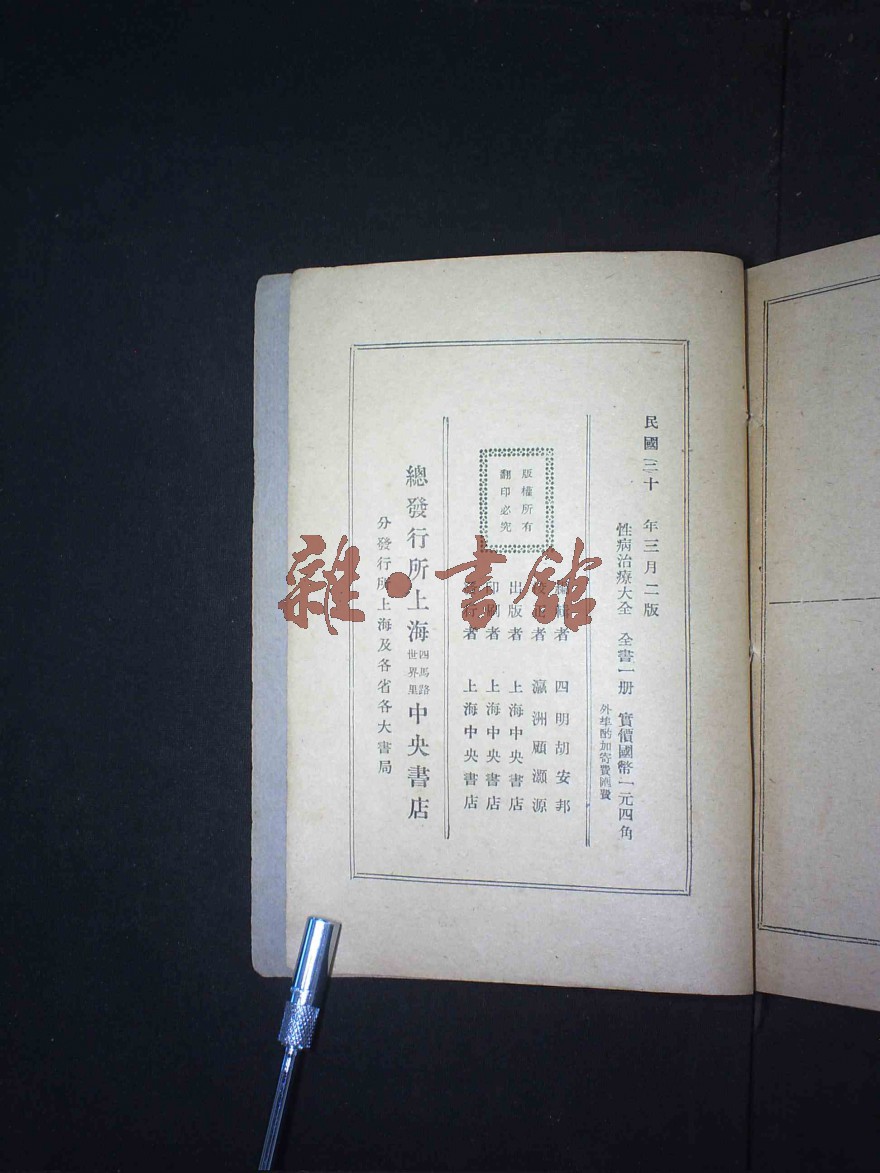 民國三十　年三月二版
性病治療大全　全書一册　實價國幣一元四角
外埠酌加寄費匯費
編輯者　四明胡安邦
校正者　瀛洲顧灝源
出版者　上海中央書店
印刷者　上海中央書店
發行者　上海中央書店
版權所有
翻印必究
總發行所上海四馬路世界里中央書店
分發行所上海及各省各大書局
雜·書館